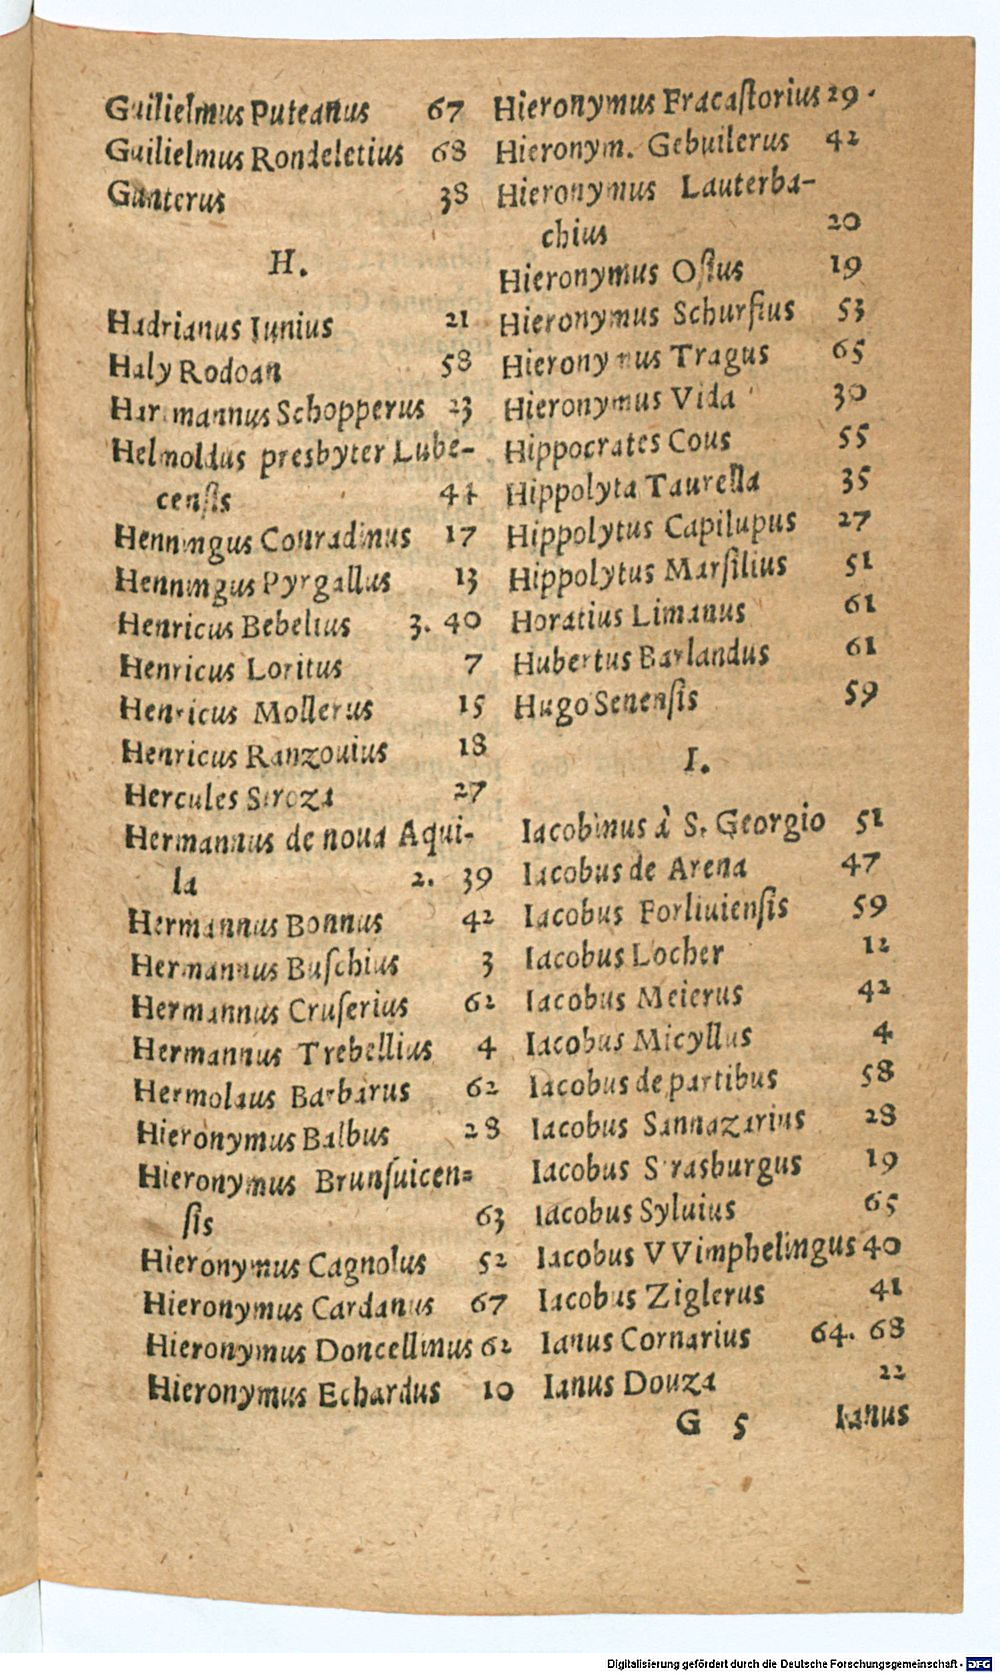 Guilielmus Puteanus 67
Guilielmus Rondeletius 68
Gunterus 38
H.
Hadrianus Iunius 21
Haly Rodoan 58
Hartmannus Schopperus 23
Helmoldus presbyter Lube-
censis 44
Henningus Conradinus 17
Henningus Pyrgallus 13
Henricus Bebelius 3. 40
Henricus Loritus 7
Henricus Mollerus 15
Henricus Ranzouius 18
Hercules Stroza 27
Hermannus de noua Aqui-
la 2. 39
Hermannus Bonnus 42
Hermannus Buſchius 3
Hermannus Cruſerius 62
Hermannus Trebellius 4
Hermolaus Barbarus 62
Hieronymus Balbus 28
Hieronymus Brunſuicen-
ſis 63
Hieronymus Cagnolus 52
Hieronymus Cardanus 67
Hieronymus Doncellinus 62
Hieronymus Echardus 10
Hieronymus Fracaſtorius 29.
Hieronym. Gebuilerus 42
Hieronymus Lauterba-
chius 20
Hieronymus Oſius 19
Hieronymus Schurfius 53
Hieronymus Tragus 65
Hieronymus Vida 30
Hippocrates Cous 55
Hippolyta Taurella 35
Hippolytus Capilupus 27
Hippolytus Marſilius 51
Horatius Limanus 61
Hubertus Barlandus 61
Hugo Senenſis 59
I.
Iacobinus à S. Georgio 51
Iacobus de Arena 47
Iacobus Forliuienſis 59
Iacobus Locher 12
Iacobus Meierus 42
Iacobus Micyllus 4
Iacobus de partibus 58
Iacobus Sannazarius 28
Iacobus Strasburgus 19
Iacobus Syluius 65
Iacobus VVimphelingus 40
Iacobus Ziglerus 41
Ianus Cornarius 64. 68
Ianus Douza 22
G 5 Ianus
Digitalisierung gefördert durch die Deutsche Forschungsgemeinschaft - DFG